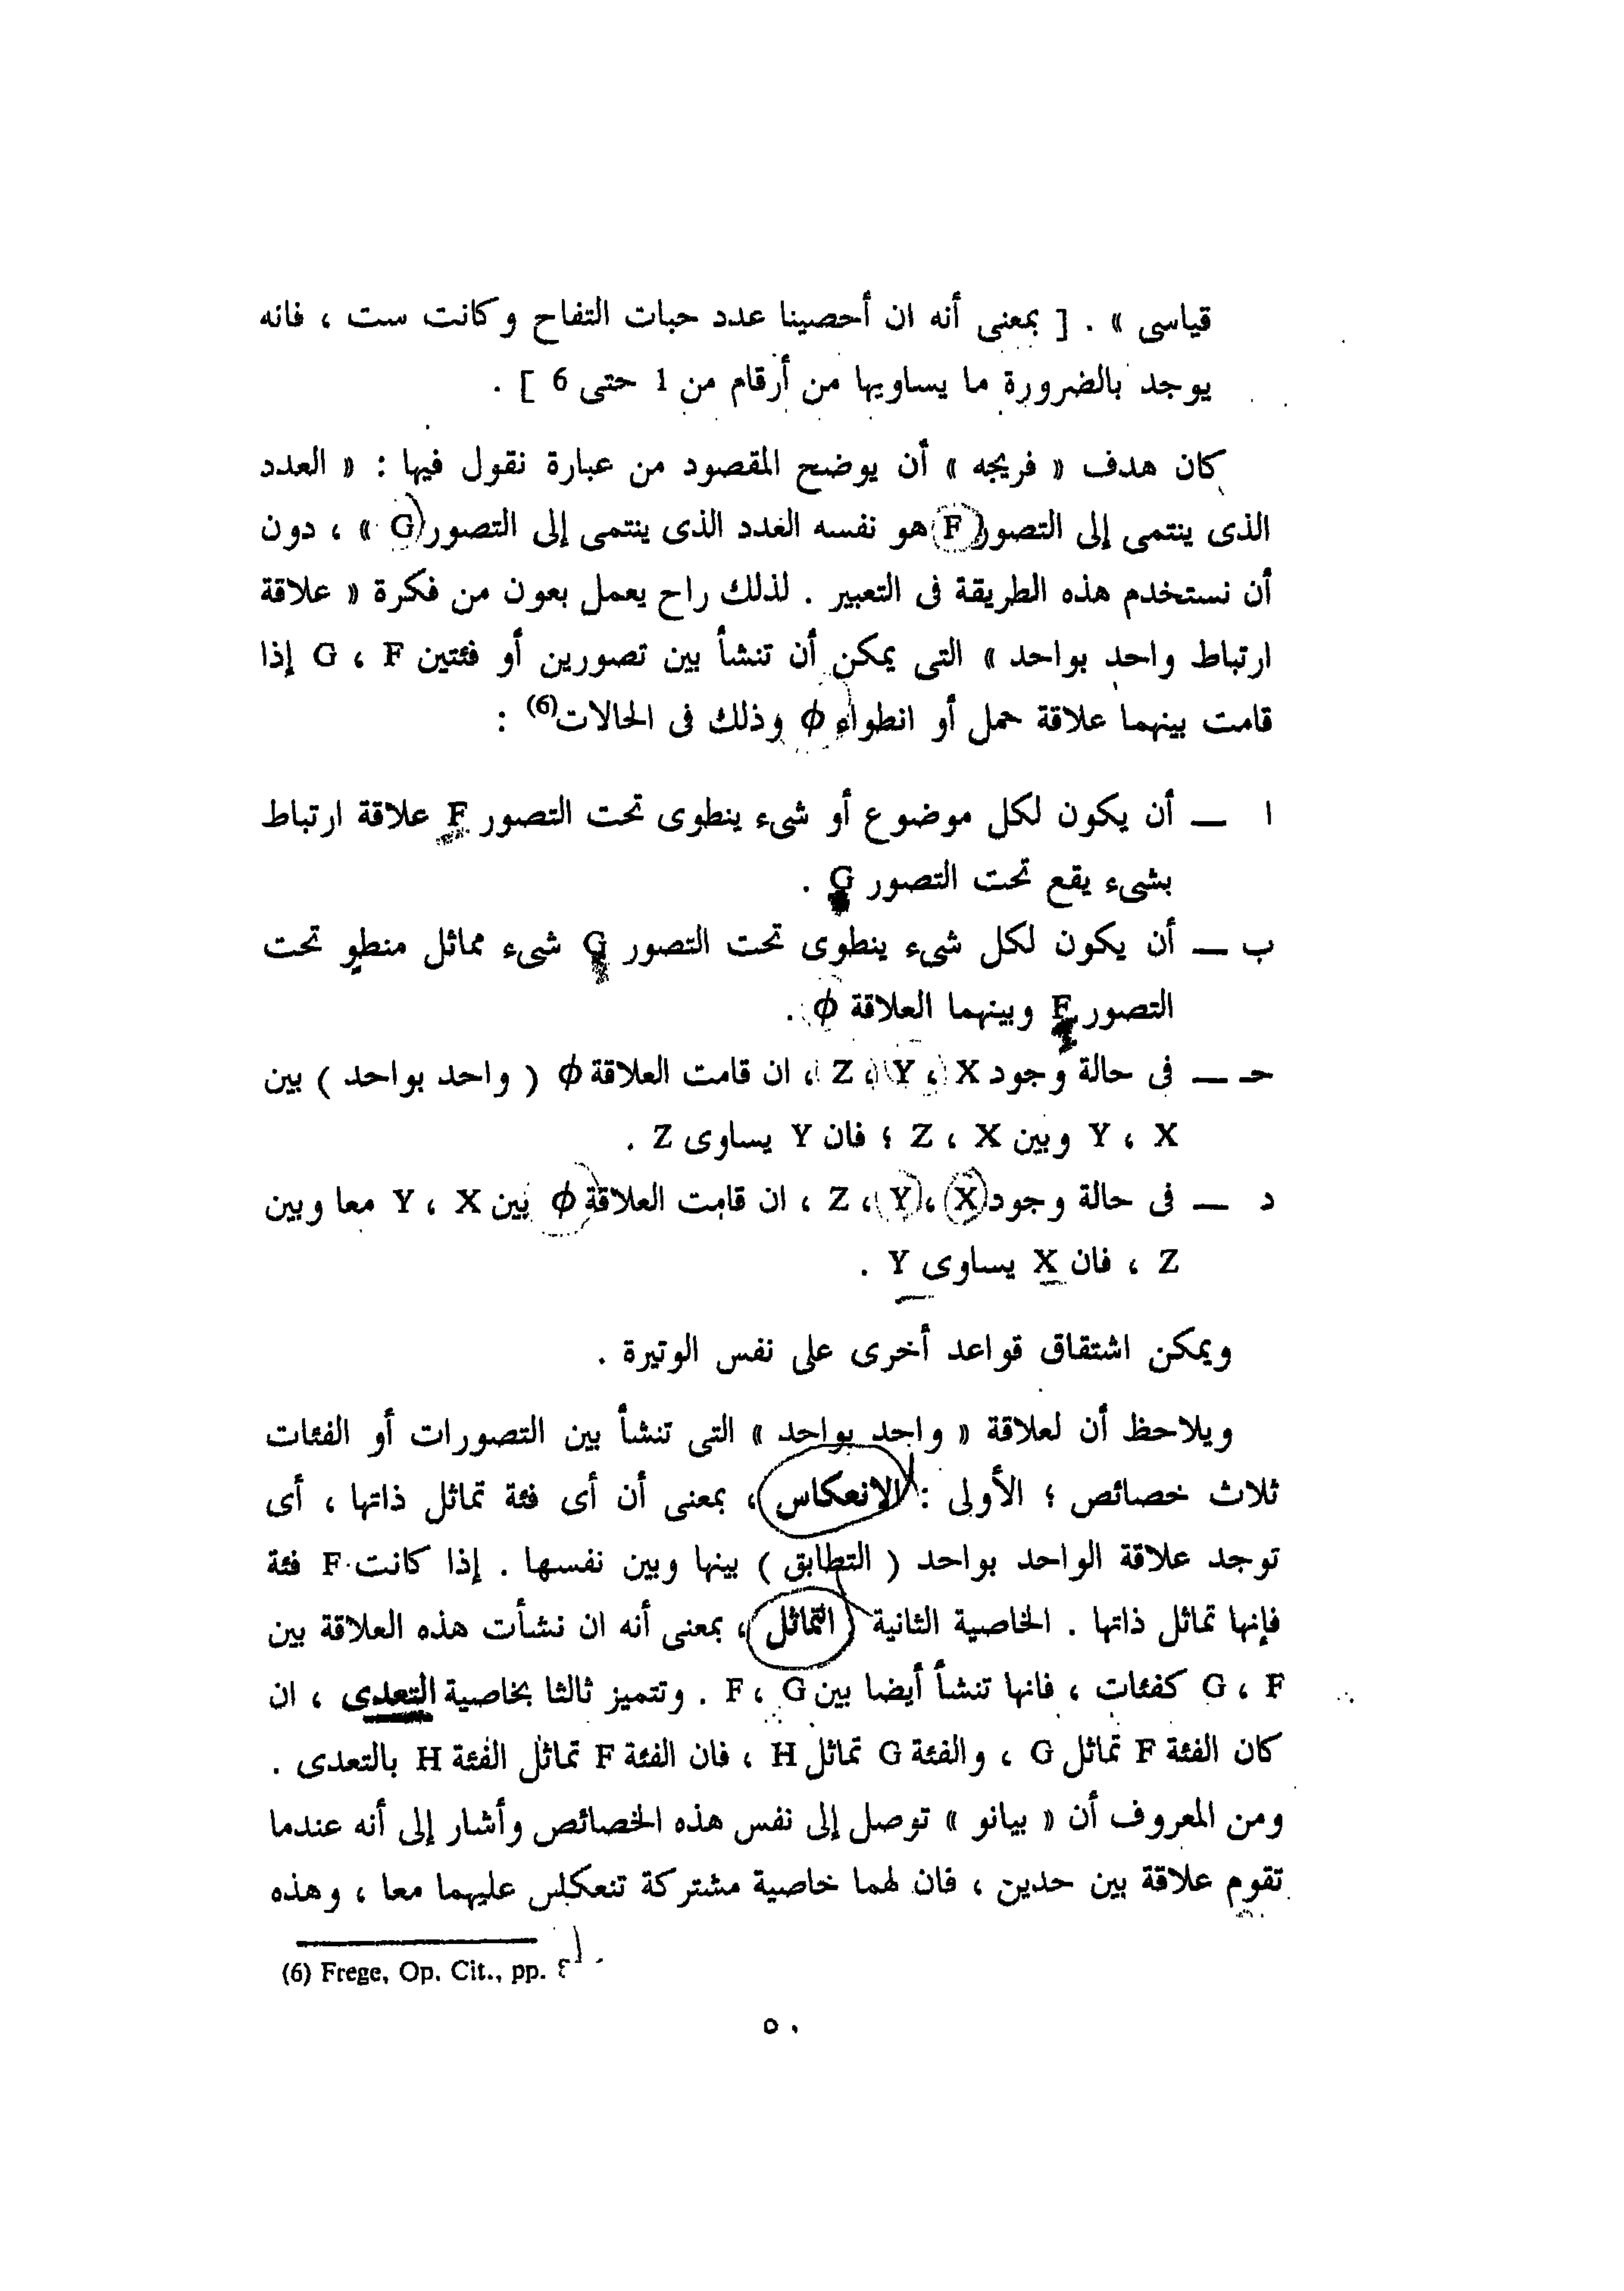 قياسى » . [ بمعنى أنه ان أحصينا عدد حبات التفاح وكانت ست ، فانه
يوجد بالضرورة ما يساويها من أرقام من 1 حتى 6 ] .
كان هدف « فريجه » أن يوضح المقصود من عبارة نقول فيها : « العدد
الذى ينتمى إلى التصور F هو نفسه العدد الذى ينتمى إلى التصور G » ، دون
أن نستخدم هذه الطريقة فى التعبير . لذلك راح يعمل بعون من فكرة « علاقة
ارتباط واحد بواحد » التى يمكن أن تنشأ بين تصورين أو فئتين G ، F إذا
قامت بينهما علاقة حمل أو انطواء ϕ وذلك فى الحالات(6) :
ا — أن يكون لكل موضوع أو شىء ينطوى تحت التصور F علاقة ارتباط
بشىء يقع تحت التصور G .
ب — أن يكون لكل شىء ينطوى تحت التصور G شىء مماثل منطو تحت
التصور F وبينهما العلاقة ϕ .
حـ — فى حالة وجود Z ، Y ، X ، ان قامت العلاقة ϕ ( واحد بواحد ) بين
Y ، X وبين Z ، X ؛ فان Y يساوى Z .
د — فى حالة وجود Z ، Y ، X ، ان قامت العلاقة ϕ بين Y ، X معا وبين
Z ، فان X يساوى Y .
ويمكن اشتقاق قواعد أخرى على نفس الوتيرة .
ويلاحظ أن لعلاقة « واحد بواحد » التى تنشأ بين التصورات أو الفئات
ثلاث خصائص ؛ الأولى : الإنعكاس ، بمعنى أن أى فئة تماثل ذاتها ، أى
توجد علاقة الواحد بواحد ( التطابق ) بينها وبين نفسها . إذا كانت F فئة
فإنها تماثل ذاتها . الخاصية الثانية التماثل ، بمعنى أنه ان نشأت هذه العلاقة بين
G ، F كفئات ، فانها تنشأ أيضا بين F ، G . وتتميز ثالثا بخاصية التعدى ، ان
كان الفئة F تماثل G ، والفئة G تماثل H ، فان الفئة F تماثل الفئة H بالتعدى .
ومن المعروف أن « بيانو » توصل إلى نفس هذه الخصائص وأشار إلى أنه عندما
تقوم علاقة بين حدين ، فان لهما خاصية مشتركة تنعكس عليهما معا ، وهذه
(6) Frege, Op. Cit., pp.
٥٠